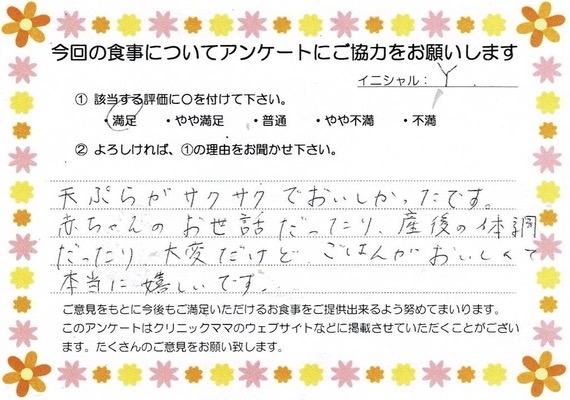 今回の食事についてアンケートにご協力をお願いします
イニシャル： Y
① 該当する評価に〇を付けて下さい。
・満足 ・やや満足 ・普通 ・やや不満 ・不満
② よろしければ、①の理由をお聞かせ下さい。
天ぷらがサクサクでおいしかったです。
赤ちゃんのお世話だったり、産後の体調
だったり、大変だけど、ごはんがおいしくて
本当に嬉しいです。
ご意見をもとに今後もご満足いただけるお食事をご提供出来るよう努めてまいります。
このアンケートはクリニックママのウェブサイトなどに掲載させていただくことがござい
ます。たくさんのご意見をお願い致します。